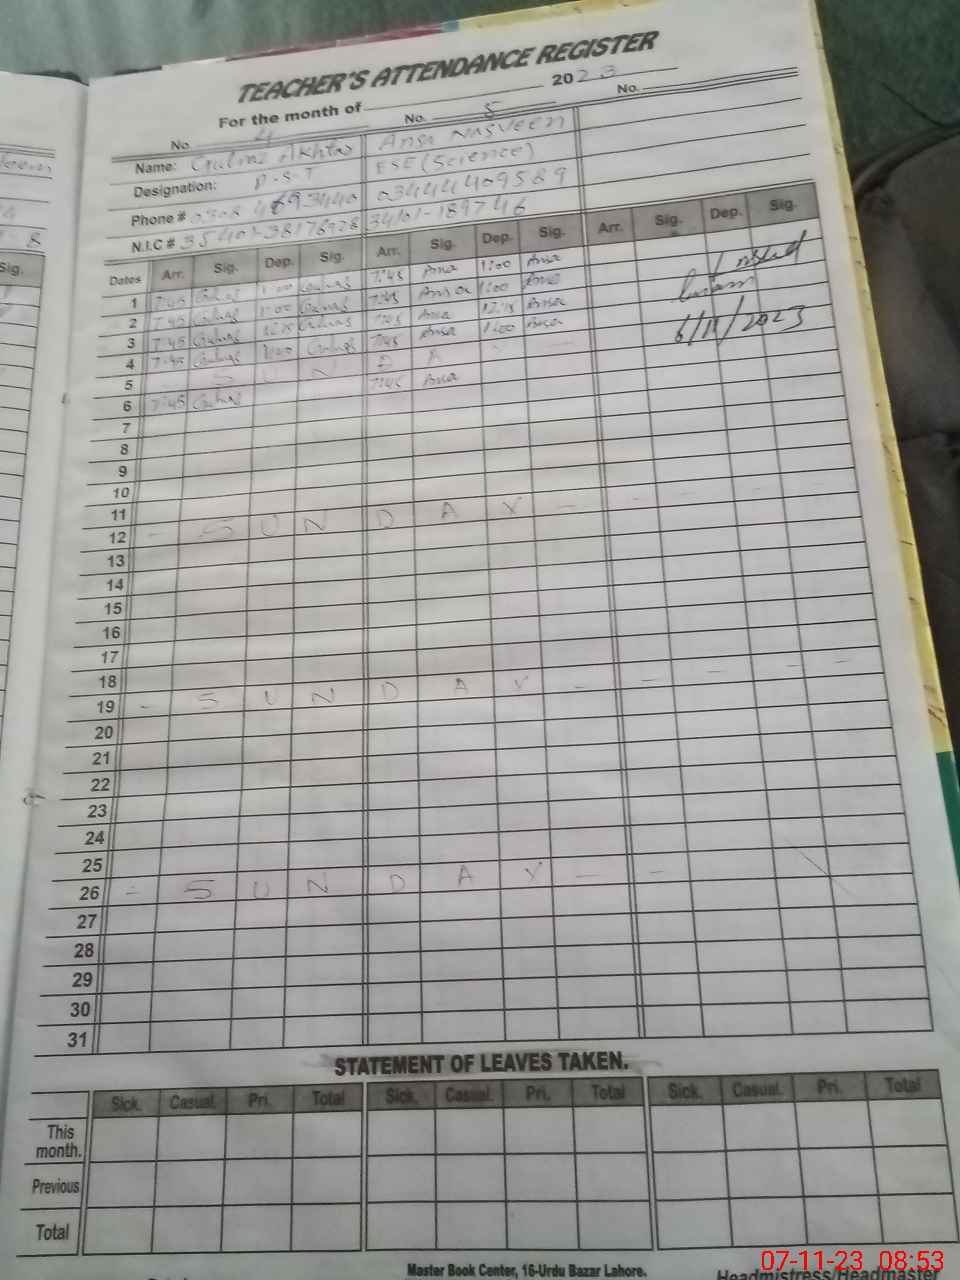 TEACHER'S ATTENDANCE REGISTER
For the month of 2023
No. 4 No. 5 No.
Name: Gulnaz Akhtar Ansa Nasveen
Designation: P.S.T ESE (Science)
Phone # 03444409589
N.I.C #
Dates Arr. Sig. Dep. Sig. Arr. Sig. Dep. Sig. Arr. Sig. Dep. Sig.
1 7:45 Gulnaz 1:00 Gulnaz 7:45 Ansa 1:00 Ansa
2 7:45 Gulnaz 1:00 Gulnaz 7:45 Ansa 1:00 Ansa
3 7:45 Gulnaz 12:15 Gulnaz 7:45 Ansa 12:15 Ansa
4 7:45 Gulnaz 1:00 Gulnaz 7:45 Ansa 1:00 Ansa
5 - S U N D A Y -
6 7:45 Gulnaz 7:45 Ansa
6/11/2023
7
8
9
10
11
12 - S U N D A Y - - - -
13
14
15
16
17
18
19 - S U N D A Y - - - - -
20
21
22
23
24
25
26 - S U N D A Y - -
27
28
29
30
31
STATEMENT OF LEAVES TAKEN.
Sick. Casual. Pri. Total Sick. Casual. Pri. Total Sick. Casual. Pri. Total
This
month.
Previous
Total
Master Book Center, 16-Urdu Bazar Lahore.
Headmistress/Headmaster
07-11-23 08:53